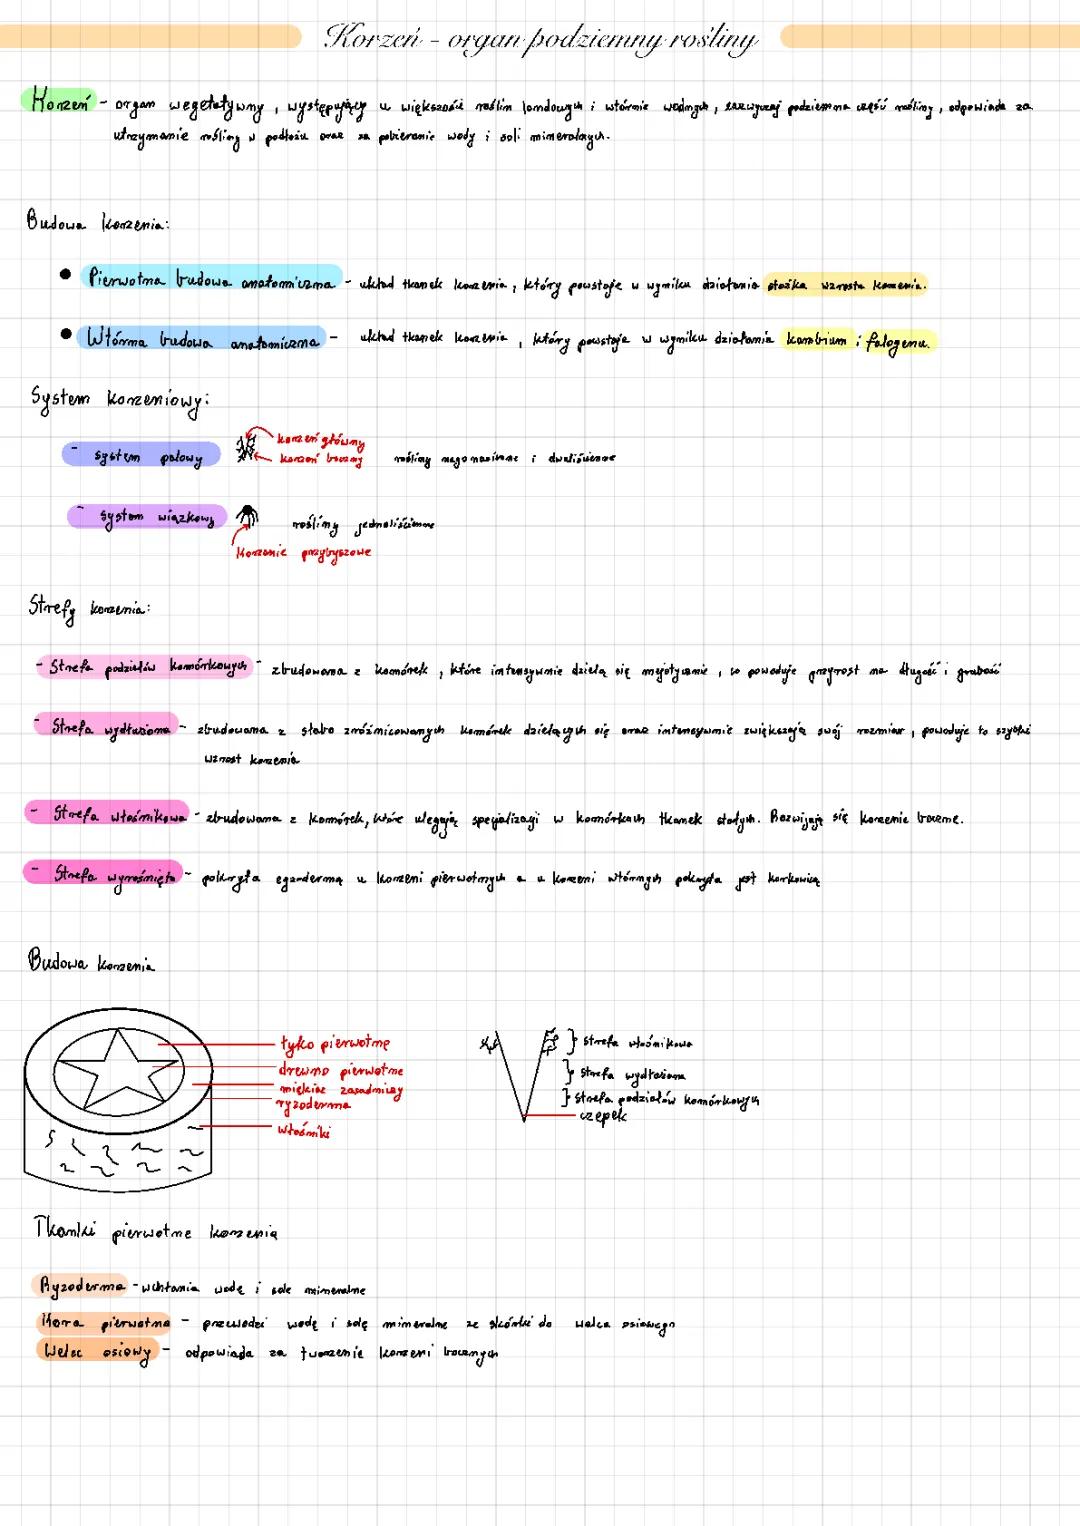 Korzeń - organ podziemny rośliny
Korzeń - organ wegetatywny, występujący u większości roślin lądowych i wtórnie wodnych, zazwyczaj podziemna część rośliny, odpowiada za
utrzymanie rośliny w podłożu oraz za pobieranie wody i soli mineralnych.
Budowa korzenia:
• Pierwotna budowa anatomiczna - układ tkanek korzenia, który powstaje w wyniku działania stożka wzrostu korzenia.
• Wtórna budowa anatomiczna - układ tkanek korzenia, który powstaje w wyniku działania kambium i felogenu.
System korzeniowy:
- system palowy
korzeń główny
korzeń boczny
rośliny nagonasienne i dwuliścienne
- System wiązkowy
rośliny jednoliścienne
Korzenie przybyszowe
Strefy korzenia:
- Strefa podziałów komórkowych - zbudowana z komórek, które intensywnie dzielą się mejotycznie, co powoduje przyrost na długość i grubość
- Strefa wydłużania - zbudowana z słabo zróżnicowanych komórek dzielących się oraz intensywnie zwiększają swój rozmiar, powoduje to szybki
wzrost korzenia
- Strefa włośnikowa - zbudowana z komórek, które ulegają specjalizacji w komórkach tkanek stałych. Rozwijają się korzenie boczne.
- Strefa wyrośnięta - pokryta egzodermą u korzeni pierwotnych a u korzeni wtórnych pokryta jest korkowicą
Budowa korzenia
łyko pierwotne
drewno pierwotne
miękisz zasadniczy
ryzoderma
włośniki
} strefa włośnikowa
} strefa wydłużana
} strefa podziałów komórkowych
czepek
Tkanki pierwotne korzenia
Ryzoderma - wchłania wodę i sole mineralne
Kora pierwotna - przewodzi wodę i solę mineralne ze skórki do walca osiowego
Walec osiowy - odpowiada za tworzenie korzeni bocznych